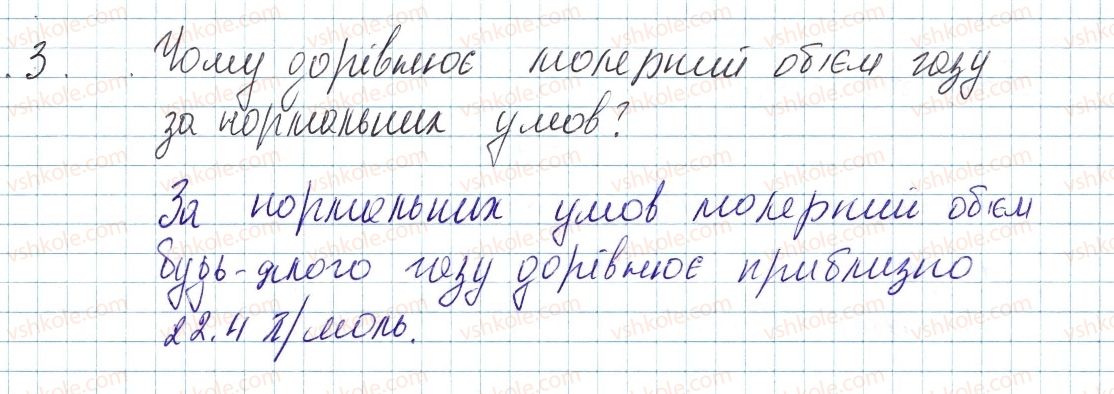 3. Чому дорівнює молярний об'єм газу
за нормальних умов?
За нормальних умов молярний об'єм
будь-якого газу дорівнює приблизно
22.4 л/моль.